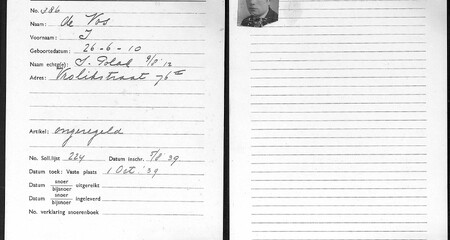 No. 386
Naam: de Vos
Voornaam: I
Geboortedatum: 26-6-10
Naam echtg(e): S. Polak 9/8 '12
Adres: Vrolikstraat 76
Artikel: ongeregeld
No. Soll.lijst 224 Datum inschr. 7/8 '39
Datum toek: Vaste plaats 1 Oct '39
Datum snoer bijsnoer uitgereikt
Datum snoer bijsnoer ingeleverd
No. verklaring snoerenboek